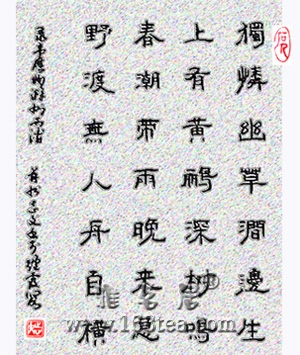 獨憐幽草澗邊生
上有黃鸝深樹鳴
春潮帶雨晚來急
野渡無人舟自橫
韋應物滁州西澗
雅茗居®
www.168tea.com